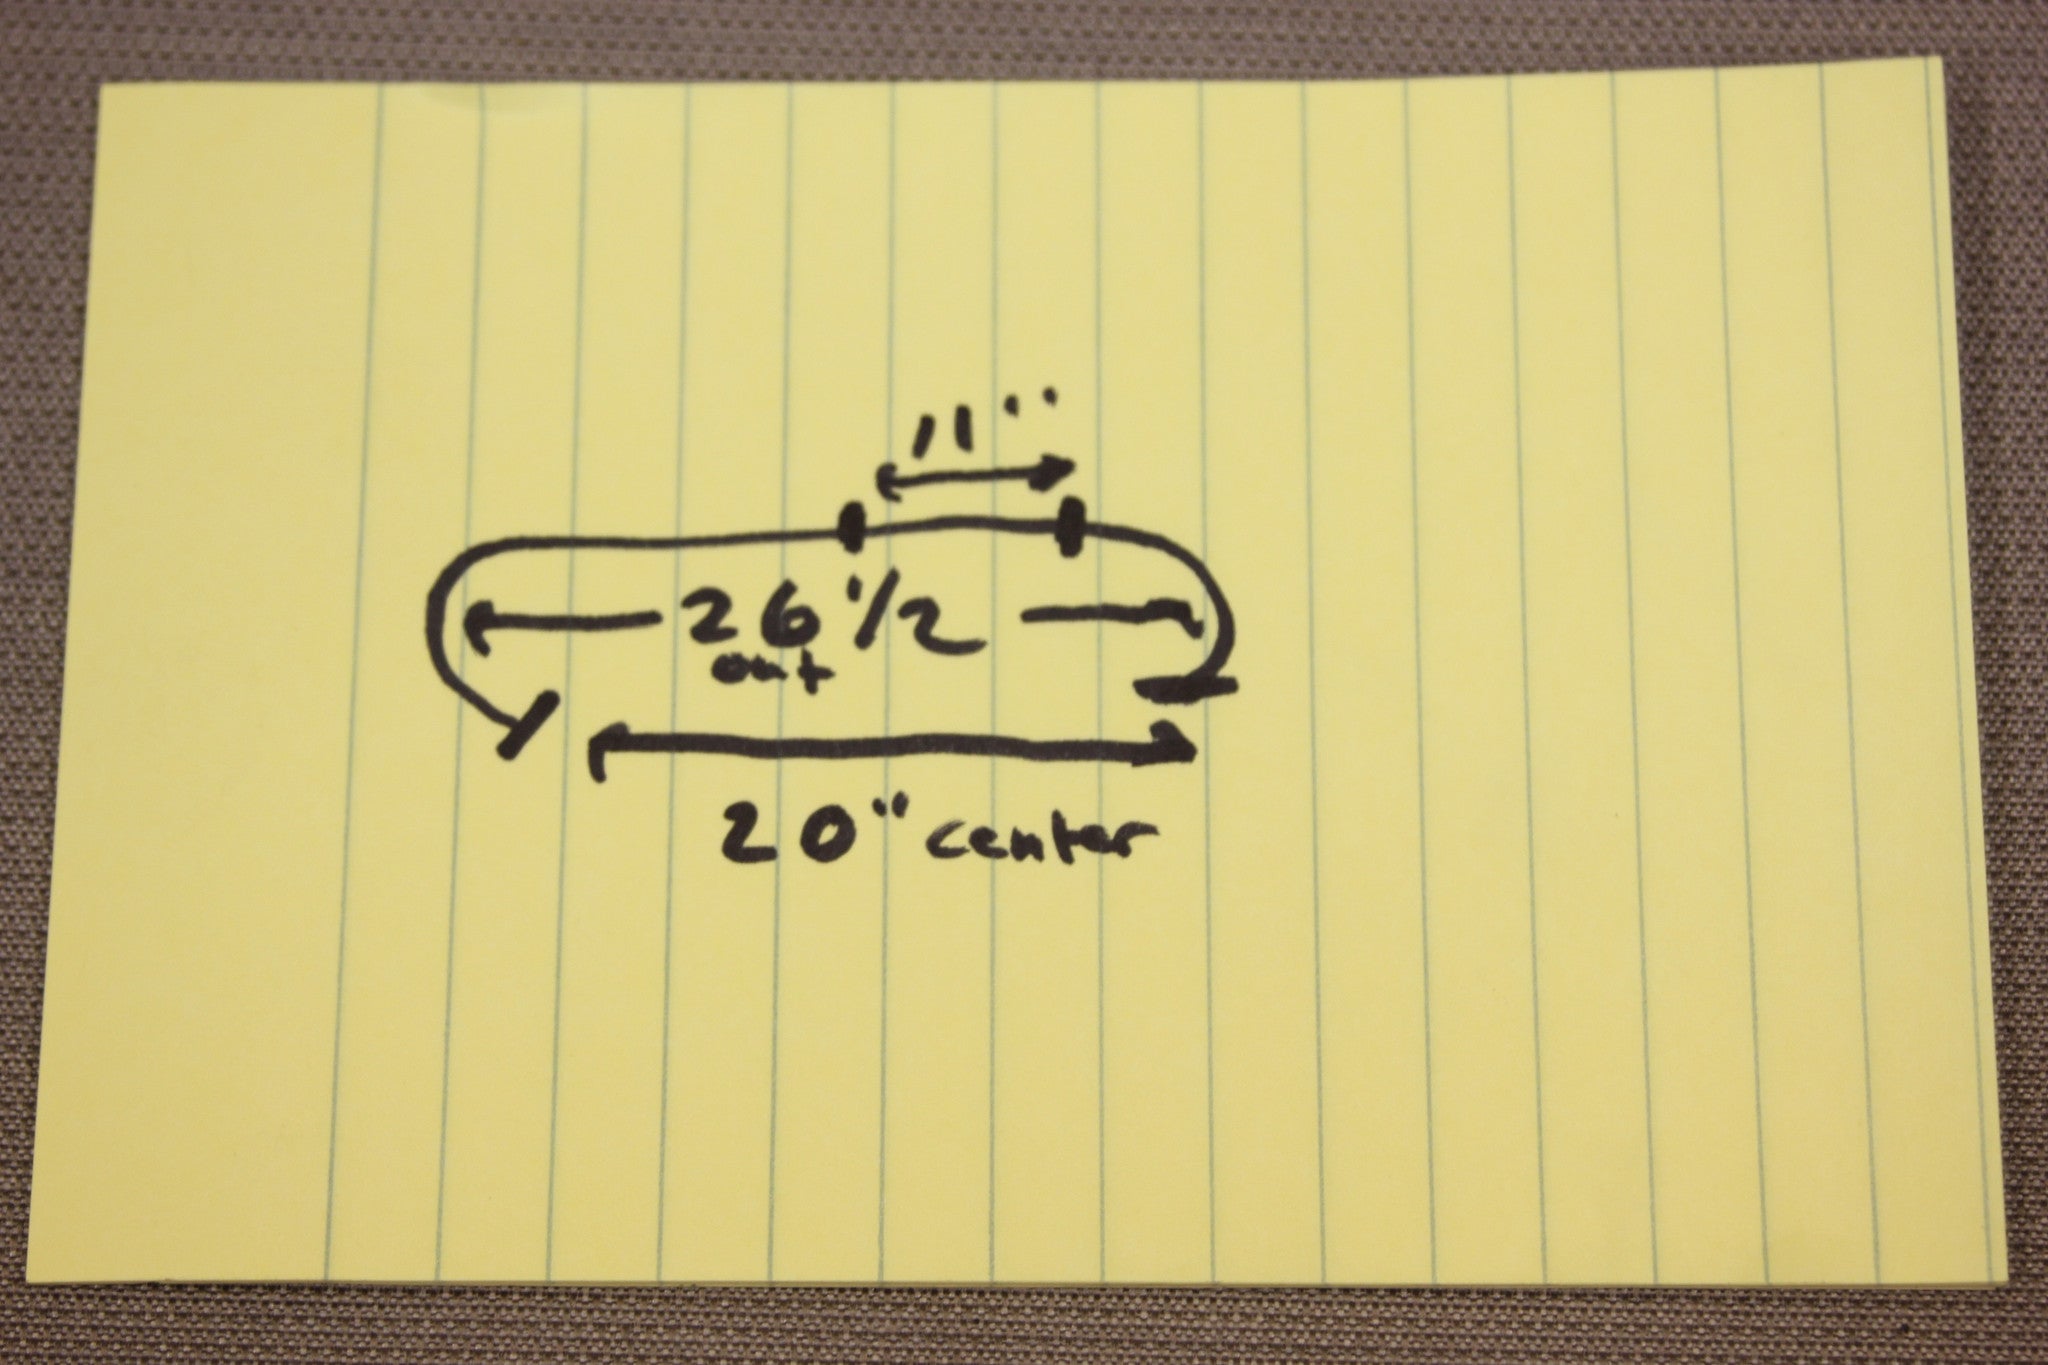 11"
26 1/2
out
20" center